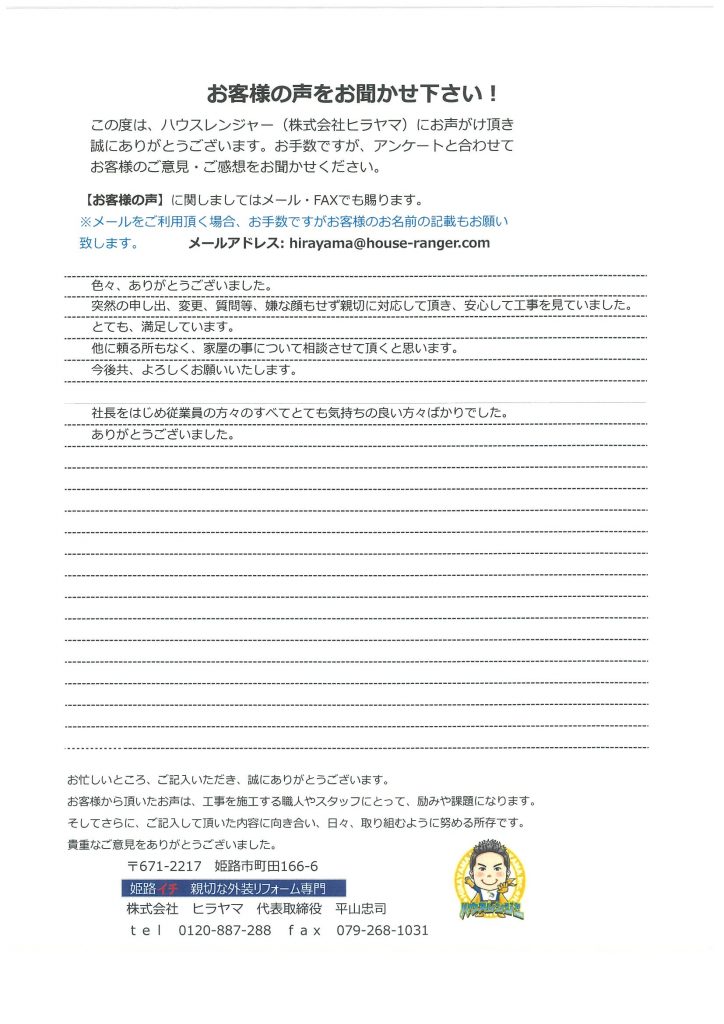 お客様の声をお聞かせ下さい！
この度は、ハウスレンジャー（株式会社ヒラヤマ）にお声がけ頂き
誠にありがとうございます。お手数ですが、アンケートと合わせて
お客様のご意見・ご感想をお聞かせください。
【お客様の声】に関しましてはメール・FAXでも賜ります。
※メールをご利用頂く場合、お手数ですがお客様のお名前の記載もお願い
致します。 メールアドレス: hirayama@house-ranger.com
色々、ありがとうございました。
突然の申し出、変更、質問等、嫌な顔もせず親切に対応して頂き、安心して工事を見ていました。
とても、満足しています。
他に頼る所もなく、家屋の事について相談させて頂くと思います。
今後共、よろしくお願いいたします。
社長をはじめ従業員の方々のすべてとても気持ちの良い方々ばかりでした。
ありがとうございました。
お忙しいところ、ご記入いただき、誠にありがとうございます。
お客様から頂いたお声は、工事を施工する職人やスタッフにとって、励みや課題になります。
そしてさらに、ご記入して頂いた内容に向き合い、日々、取り組むように努める所存です。
貴重なご意見をありがとうございました。
〒671-2217 姫路市町田166-6
姫路イチ 親切な外装リフォーム専門
株式会社 ヒラヤマ 代表取締役 平山忠司
ｔｅｌ 0120-887-288 ｆａｘ 079-268-1031
ハウスレンジャー